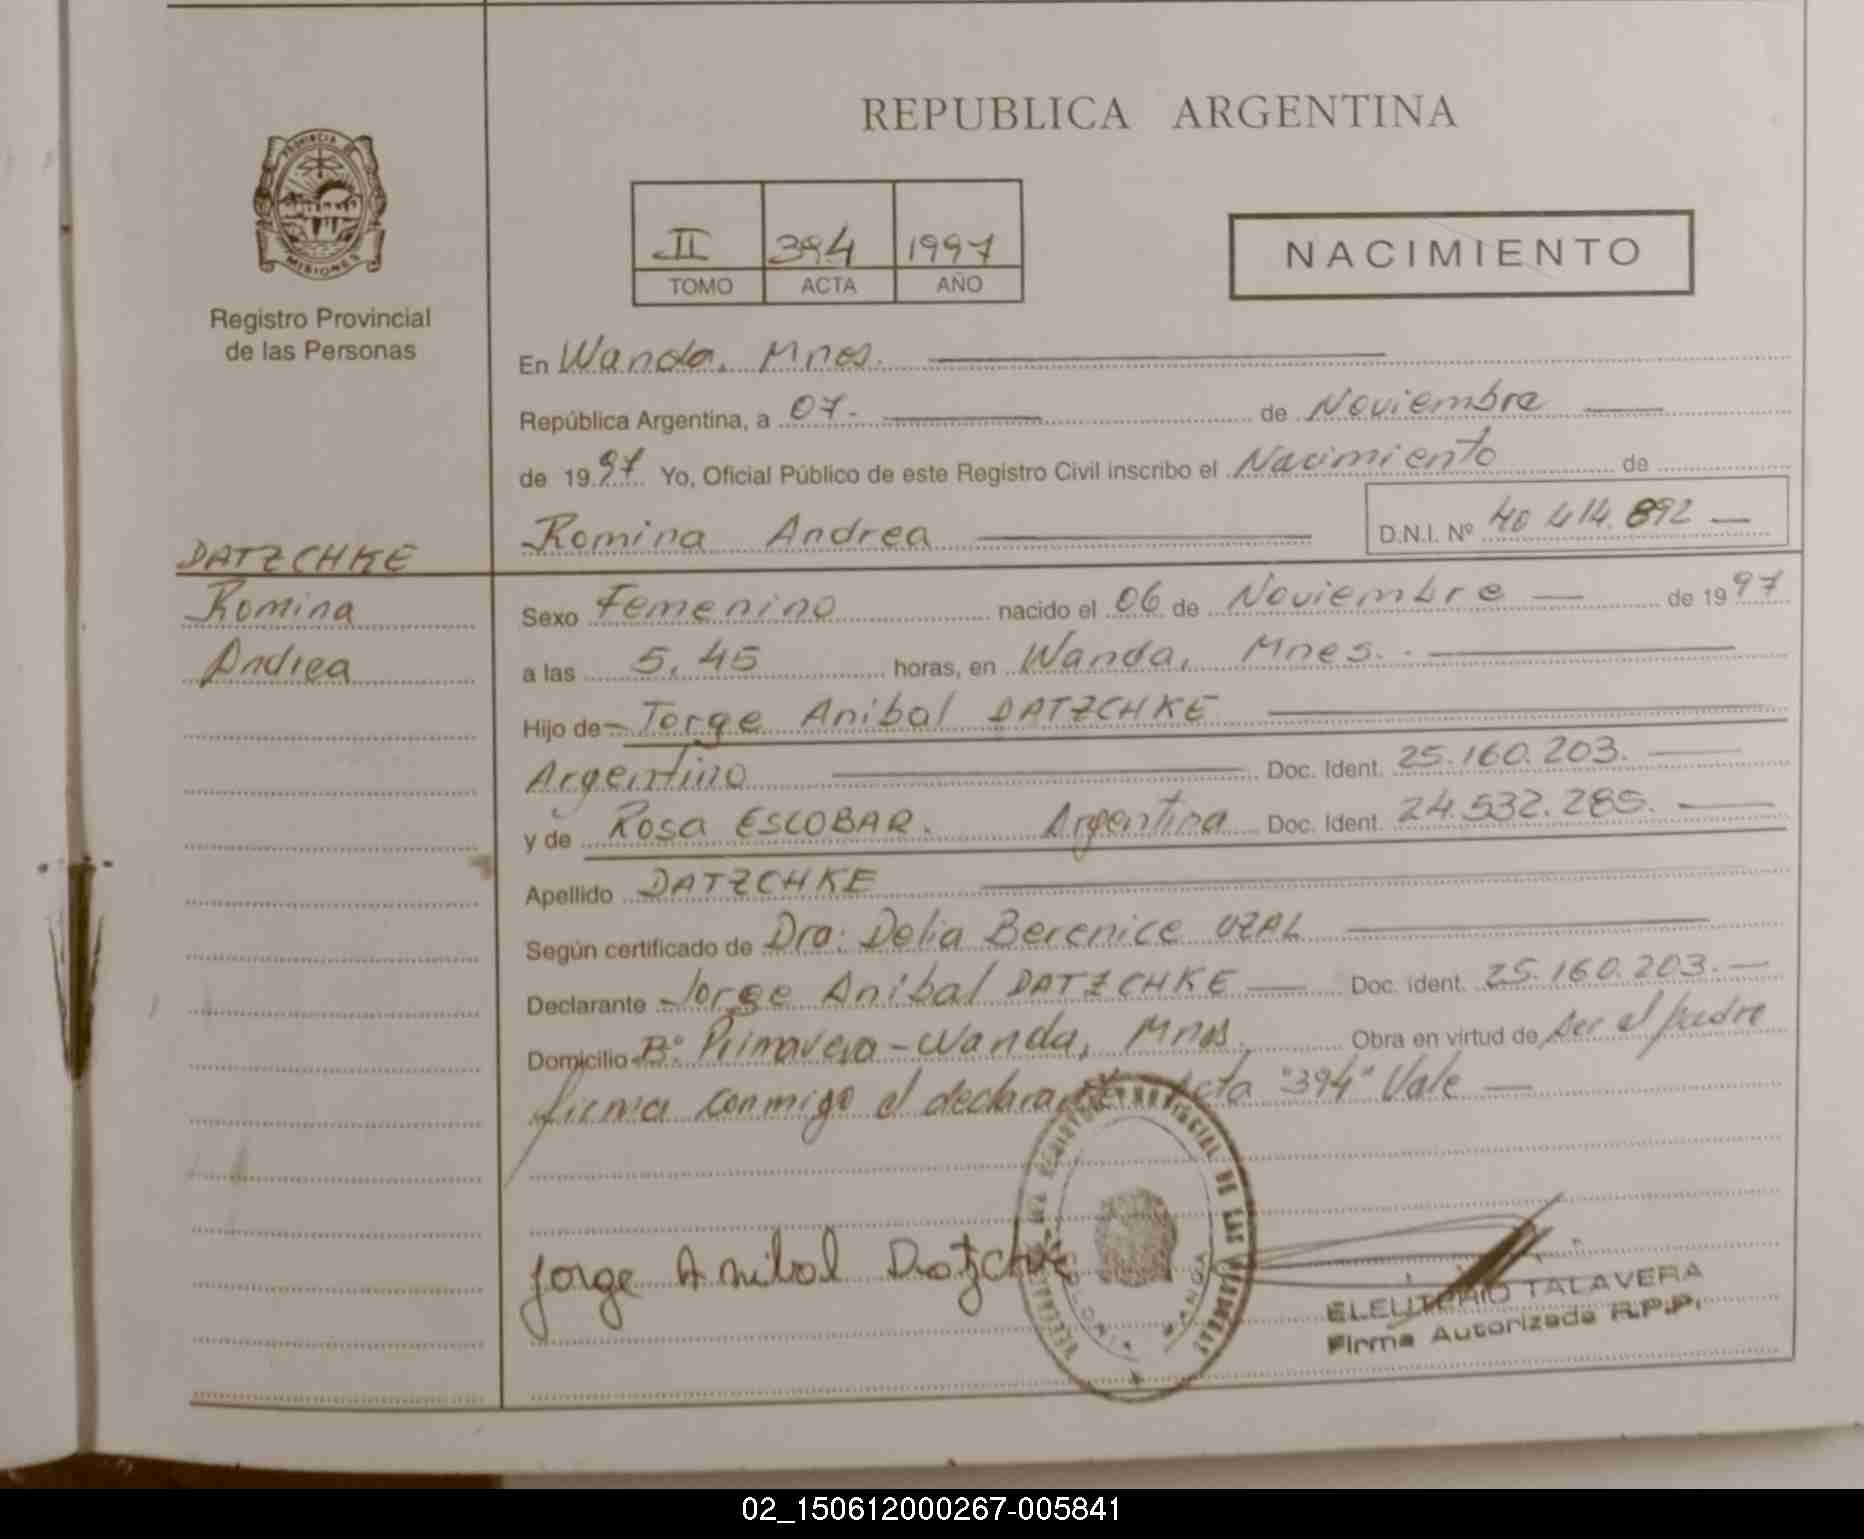 REPUBLICA ARGENTINA
PROVINCIA DE
MISIONES
Registro Provincial
de las Personas
II 394 1997
TOMO ACTA AÑO
NACIMIENTO
En Wanda, Mnes.
República Argentina, a 07. de Noviembre
de 1997 Yo, Oficial Público de este Registro Civil inscribo el Nacimiento de
Romina Andrea D.N.I. Nº 40 414.892
DATZCHKE
Romina
Andrea
Sexo Femenino nacido el 06 de Noviembre de 1997
a las 5.45 horas, en Wanda, Mnes.
Hijo de Jorge Anibal DATZCHKE
Argentino Doc. Ident. 25.160.203.
y de Rosa ESCOBAR. Argentina Doc. Ident. 24.532.285.
Apellido DATZCHKE
Según certificado de Dra: Delia Berenice UZAL
Declarante Jorge Anibal DATZCHKE Doc. ident. 25.160.203.
Domicilio Bº Primavera - Wanda, Mnes. Obra en virtud de ser el padre
firma conmigo el declarante Acta "394" Vale
Jorge Anibal Datzchke
PROVINCIAL DE LAS PERSONAS
COLONIA WANDA
ELEUTERIO TALAVERA
Firma Autorizada R.P.P.
02_150612000267-005841